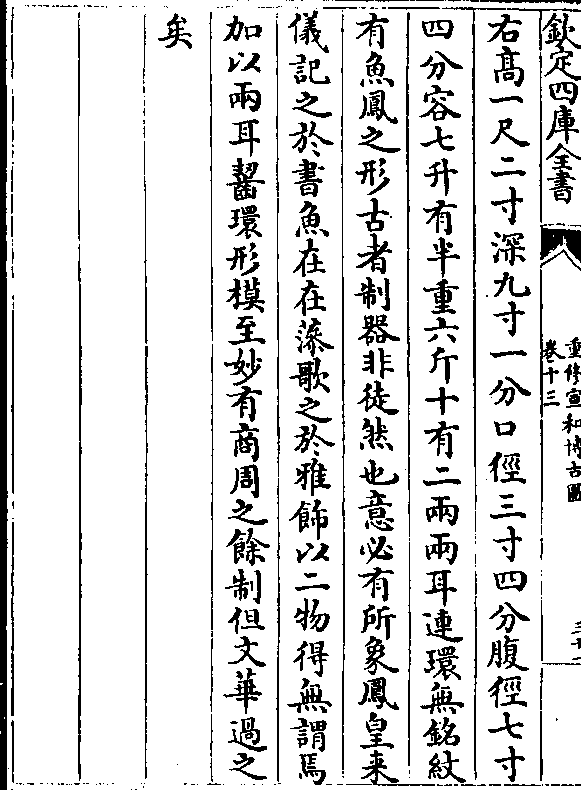 欽定四庫全書
重修宣和博古圖
卷十三
右髙一尺二寸深九寸一分口徑三寸四分腹徑七寸
四分容七升有半重六斤十有二兩兩耳連環無銘紋
有魚鳳之形古者制器非徒然也意必有所象鳳皇来
儀記之於書魚在在藻歌之於雅飾以二物得無謂焉
加以兩耳齧環形模至妙有商周之餘制但文華過之
矣